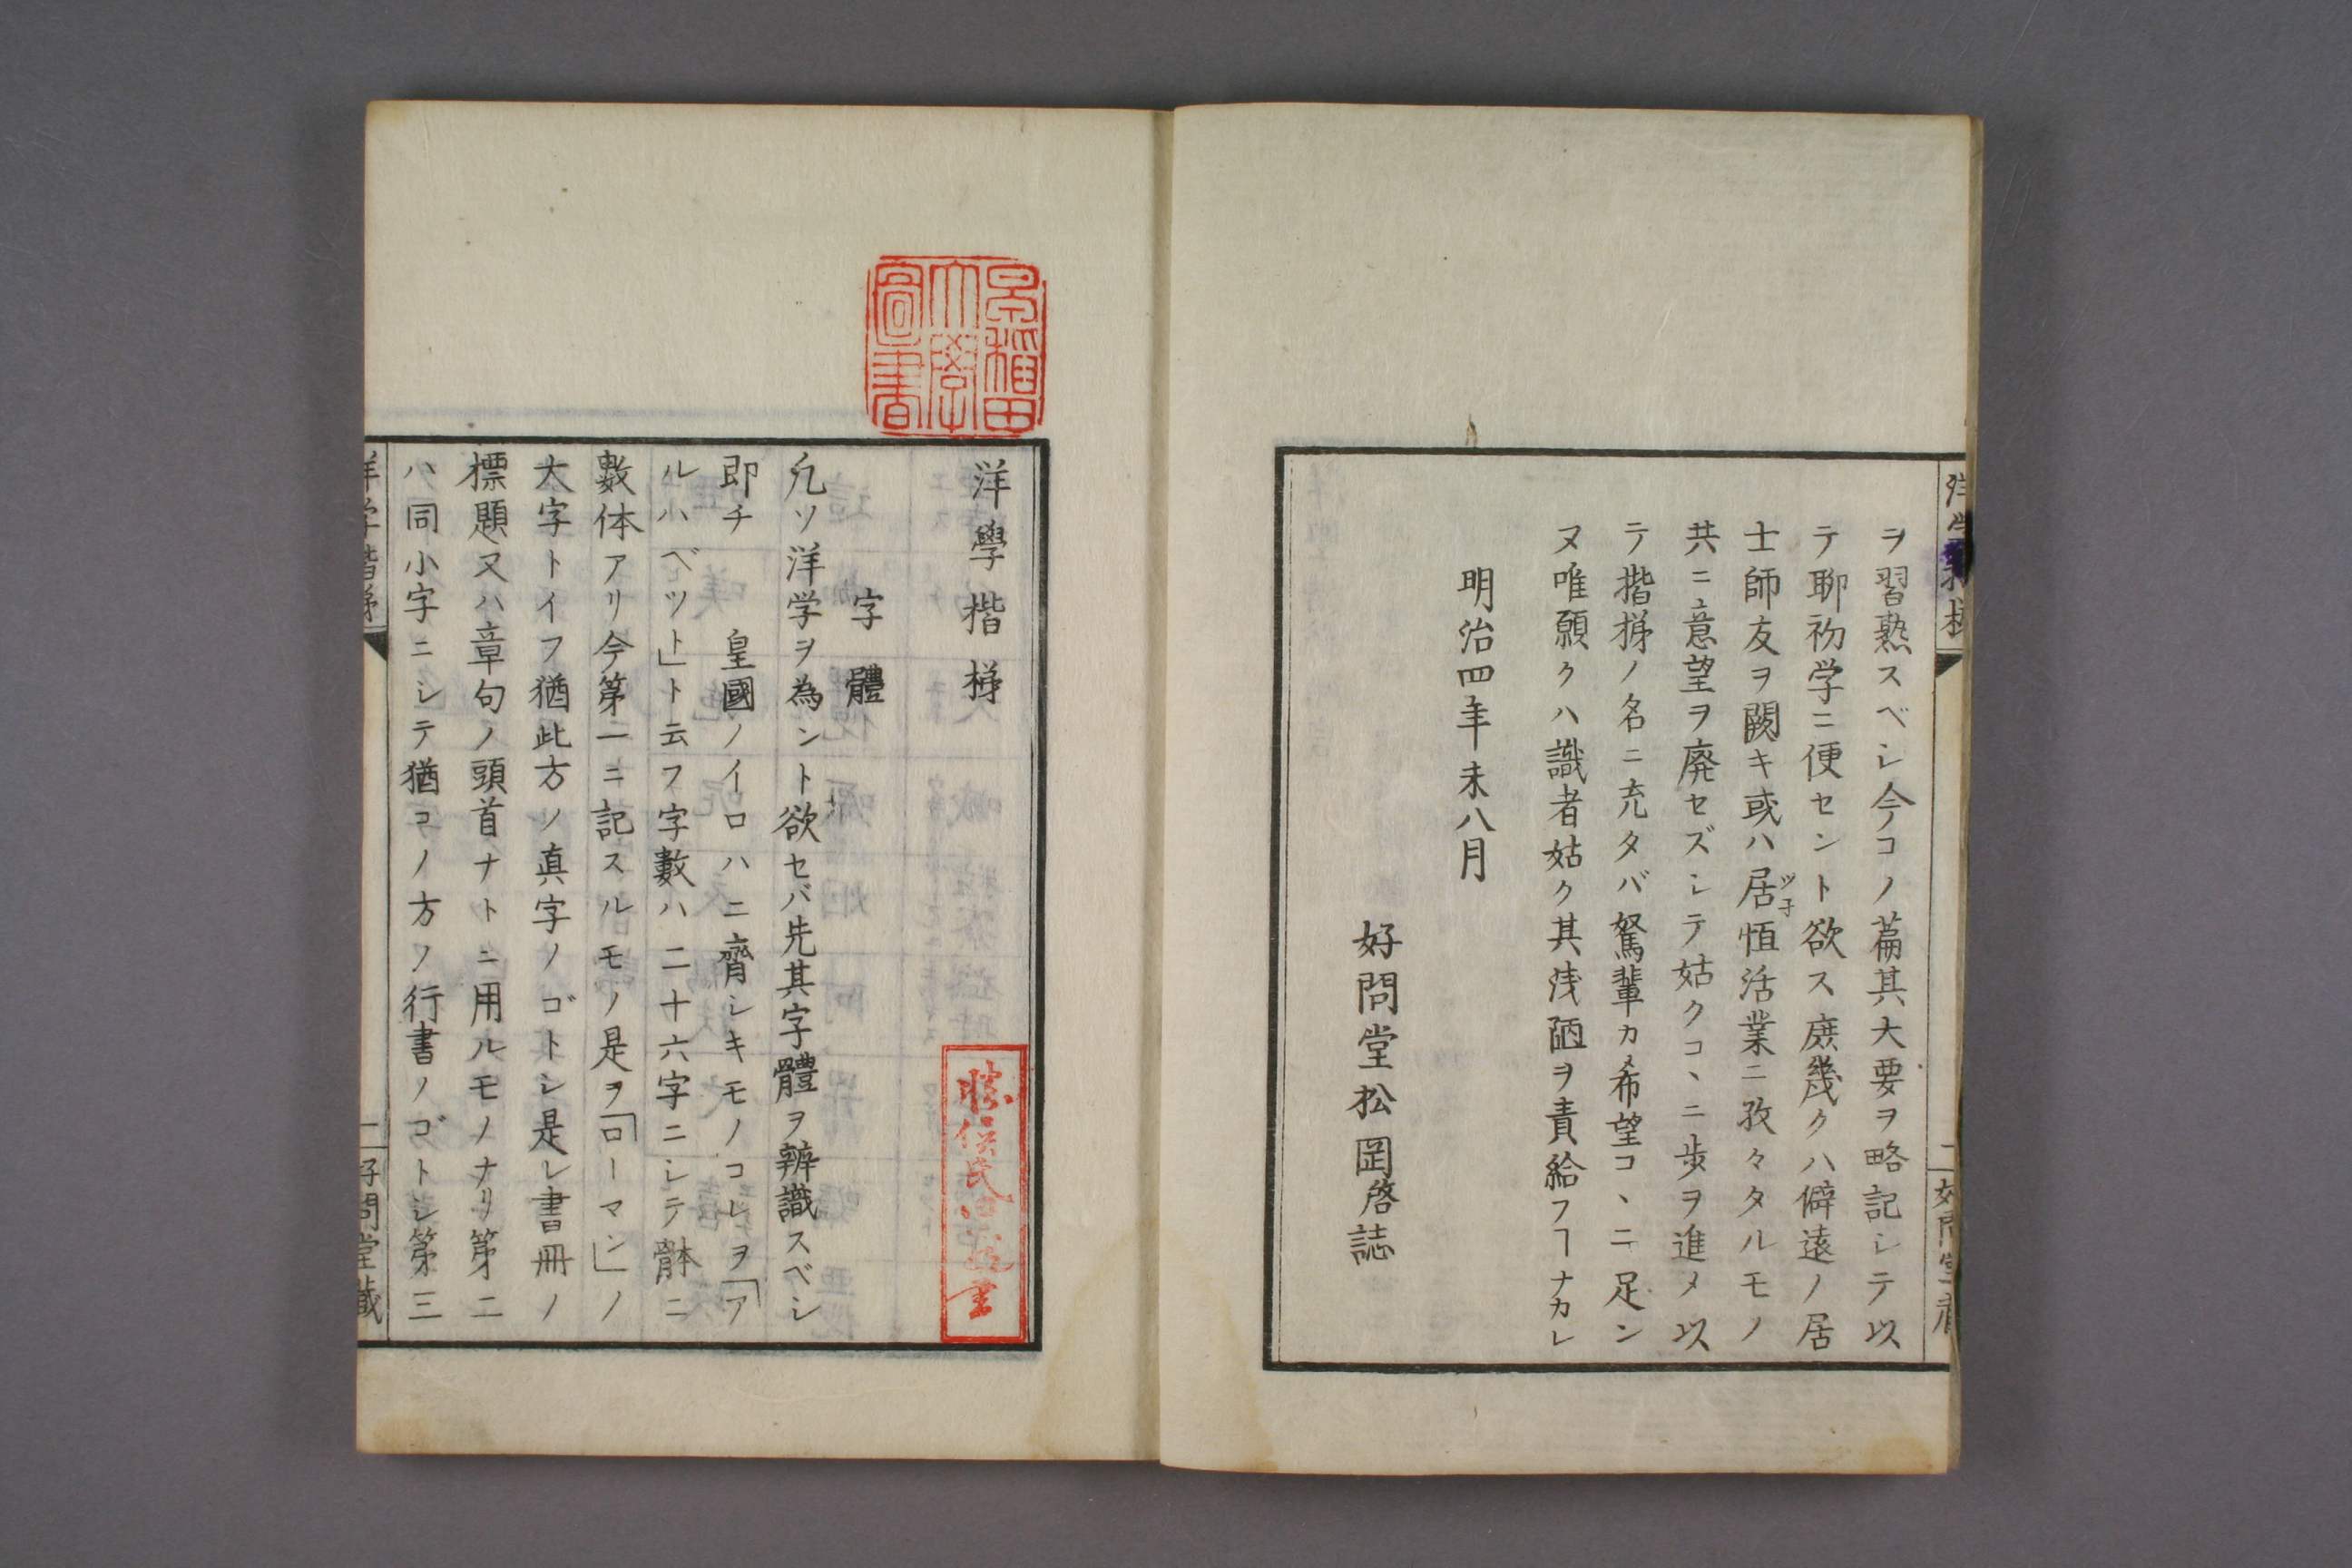 ヲ習熟スベシ今コノ萹其大要ヲ略記シテ以
テ聊初学ニ便セント欲ス庶幾クハ僻遠ノ居
士師友ヲ闕キ或ハ居恒活業ニ孜々タルモノ
ツ子
共ニ意望ヲ廃セズシテ姑クコヽニ歩ヲ進メ以
テ揩梯ノ名ニ充タバ駑輩カ希望コヽニ足ン
ヌ唯願クハ識者姑ク其浅陋ヲ責給フヿナカレ
明治四年未八月
好問堂松岡啓誌
早稲田大學圖書
洋學楷梯
字體
凡ソ洋学ヲ為ント欲セバ先其字體ヲ辨識スベシ
即チ 皇國ノイロハニ齊シキモノコレヲ「ア
ルハベツト」ト云フ字數ハ二十六字ニシテ體ニ
數体アリ今第一ニ記スルモノ是ヲ「ローマン」ノ
大字トイフ猶此方ノ真字ノゴトシ是レ書冊ノ
標題又ハ章句ノ頭首ナトニ用ルモノナリ第二
ハ同小字ニシテ猶コノ方ノ行書ノゴトシ第三
洋学楷梯
一
好問堂藏